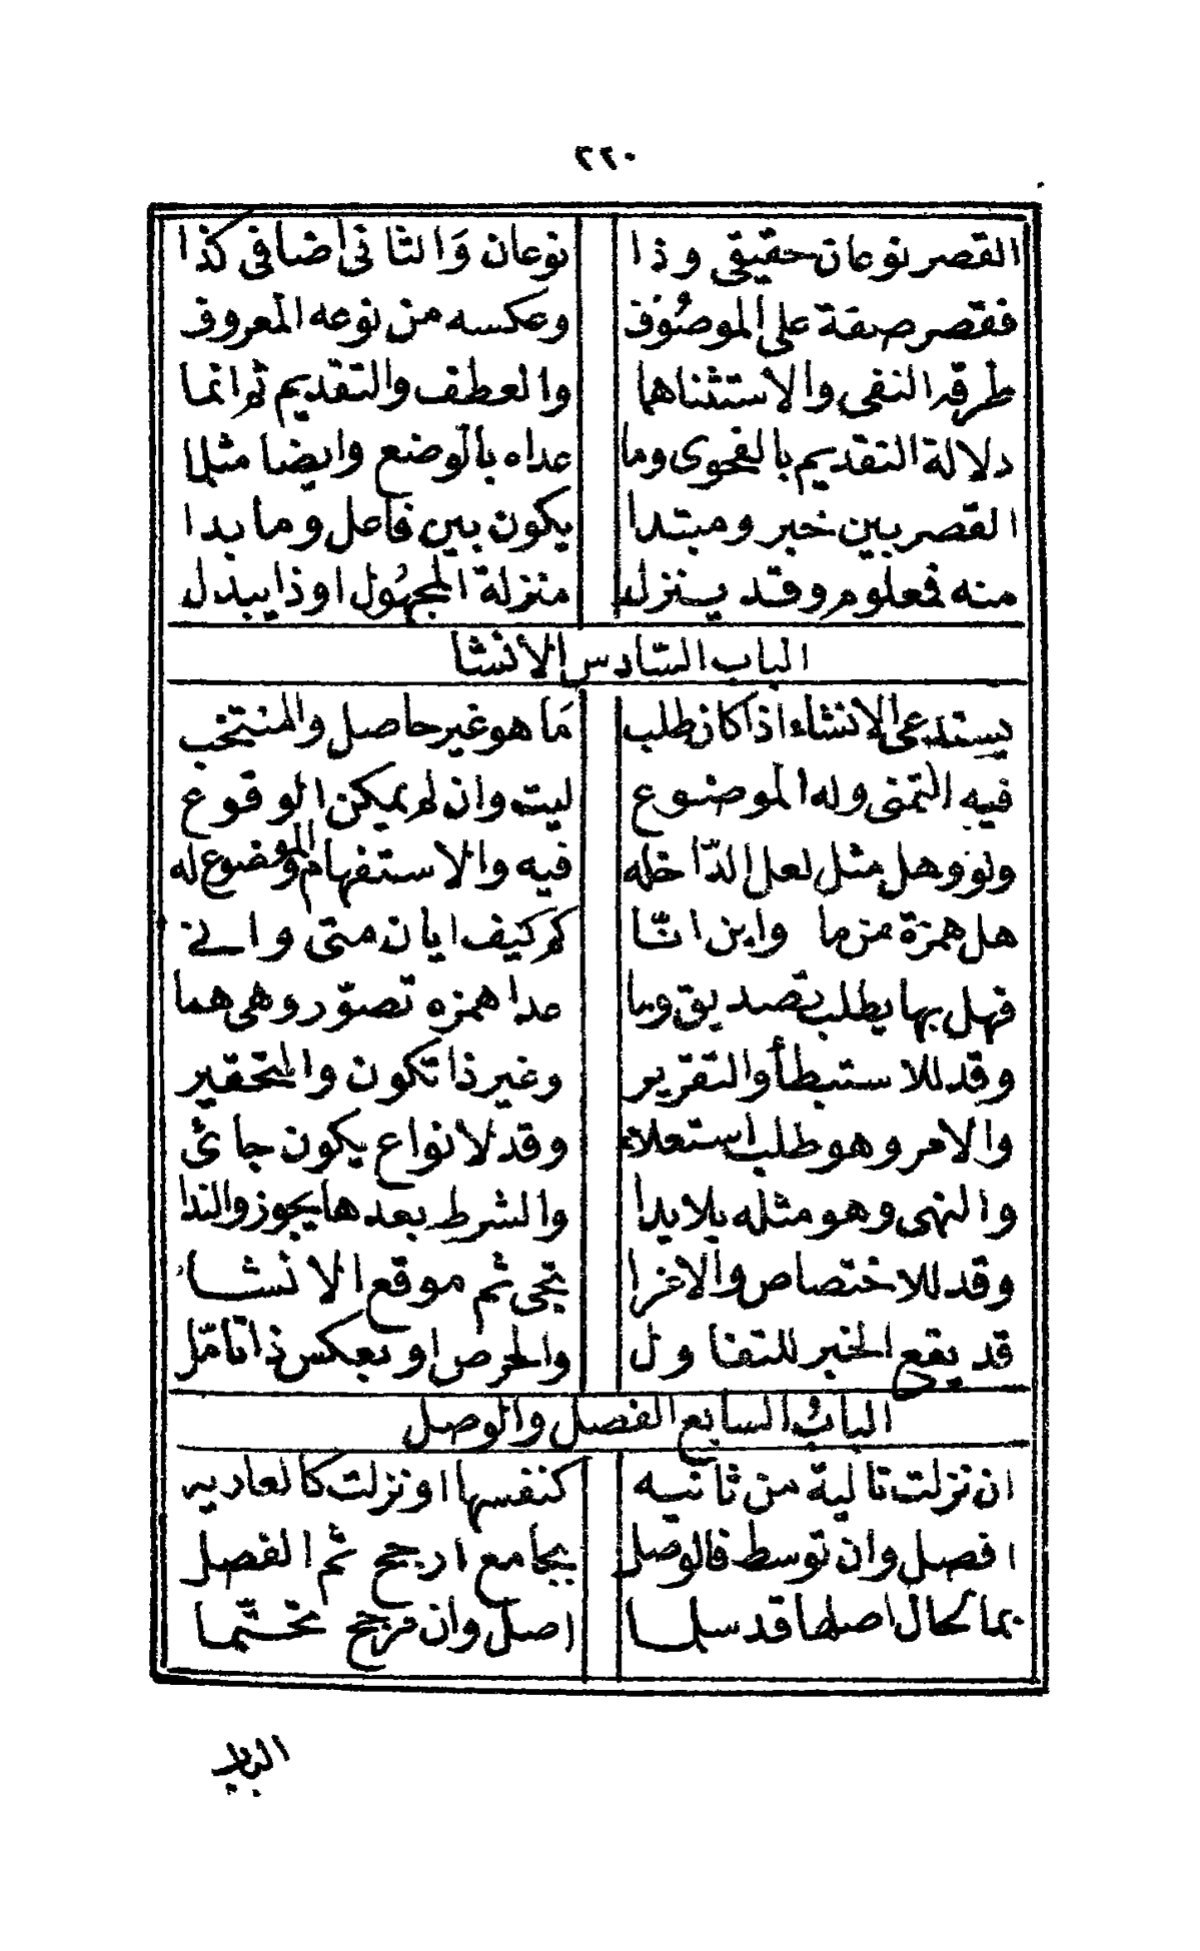 ٢٢٠
القصر نوعان حقيقى وذا نوعان وَالثانى اضافى كذا
فقصر صفة على الموصُوف وعكسه من نوعه المعروف
طرقه النفى والاستثناهما والعطف والتقديم ثم انما
دلالة التقديم بالفحوى وما عداه بالوضع وايضا مثلا
القصر بين خبر ومبتدا يكون بين فاعل وما بدا
منه فمعلوم وقد ينزل منزلة المجهُول او ذا يبدل
الباب السّادس الأنشا
يستدعى الانشاء اذا كان طلب مَا هو غير حاصل والمنتخب
فيه التمنى وله الموضوع ليت وان لم يمكن الوقوع
ولو وهل مثل لعل الدّاخله فيه والاستفهام والموضوع له
هل همزة من ما واين انّا كم كيف ايان متى وانى
فهل بها يطلب تصديق وما عدا همزه تصوّر وهى هما
وقد للاستبطأ والتقرير وغير ذا تكون والتحقير
والامر وهو طلب استعلاء وقد لانواع يكون جائى
والنهى وهو مثله بلا بدا والشرط بعدها يجوز والندا
وقد للاختصاص والاغرا تجى ثم موقع الانشاء
قد يقع الخبر للتفاول والحرص او بعكس ذا تامّل
البابُ السابع الفصل والوصل
ان نزلت تالية من ثانيه كنفسها او نزلت كالعاريه
افصل وان توسط فالوصل بجامع ارجح ثم الفصل
بما لحال اصلها قد سلما اصل وان مرجح تحتّما
الباب